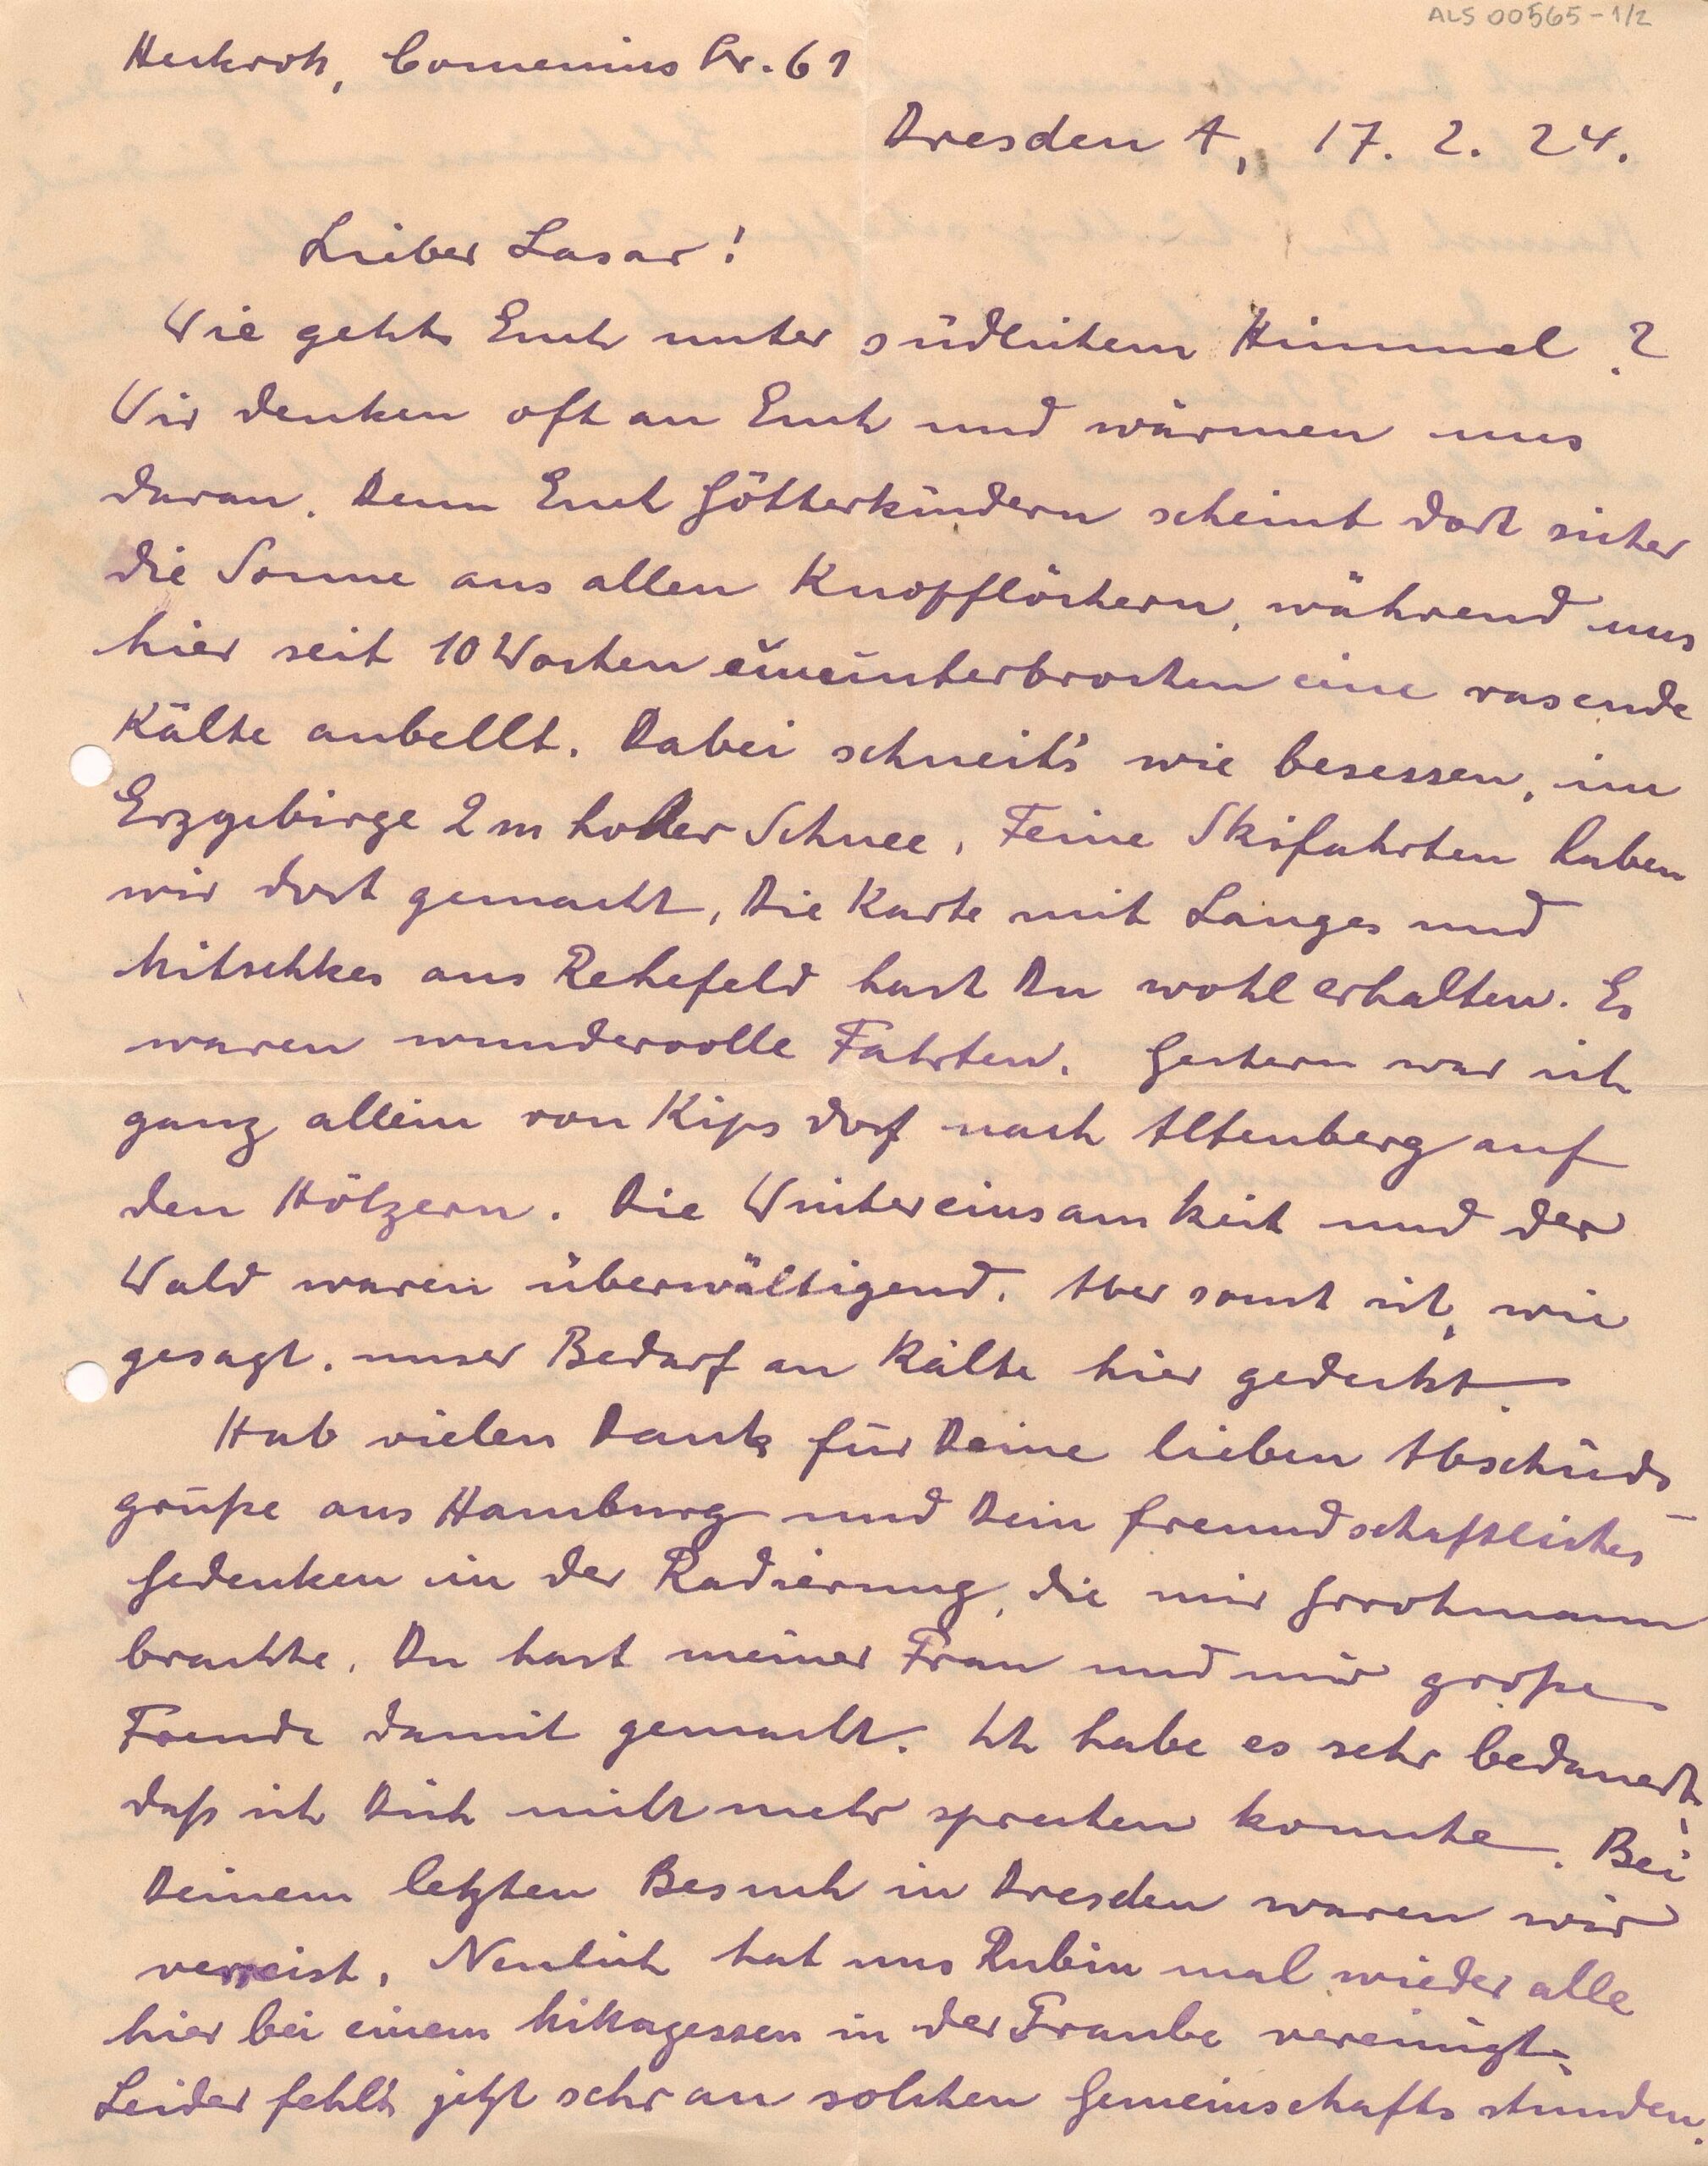 ALS 00565-1/2
Heckrott, Comenius Str. 61
Dresden A, 17. 2. 24.
Lieber Lasar!
Wie gehts Euch unter südlichem Himmel?
Wir denken oft an Euch und wärmen uns
daran. Denn Euch Götterkindern scheint dort sicher
die Sonne aus allen Knopflöchern, während uns
hier seit 10 Wochen ununterbrochen eine rasende
Kälte anbellt. Dabei schneit's wie besessen, im
Erzgebirge 2 m hoher Schnee. Feine Skifahrten haben
wir dort gemacht, Die Karte mit Langes und
Mitschkes aus Rehefeld hast Du wohl erhalten. Es
waren wundervolle Fahrten. Gestern war ich
ganz allein von Kipsdorf nach Altenberg auf
den Hölzern. Die Wintereinsamkeit und der
Wald waren überwältigend. Aber sonst ist, wie
gesagt, unser Bedarf an Kälte hier gedeckt.
Hab vielen Dank für Deine lieben Abschieds-
grüße aus Hamburg und Dein freundschaftliches
Gedenken in der Radierung, die mir Grohmann
brachte. Du hast meiner Frau und mir große
Freude damit gemacht. Ich habe es sehr bedauert,
daß ich Dich nicht mehr sprechen konnte. Bei
Deinem letzten Besuch in Dresden waren wir
verreist. Neulich hat uns Rubin mal wieder alle
hier bei einem Mittagessen in der Traube vereinigt.
Leider fehlt's jetzt sehr an solchen Gemeinschaftsstunden.